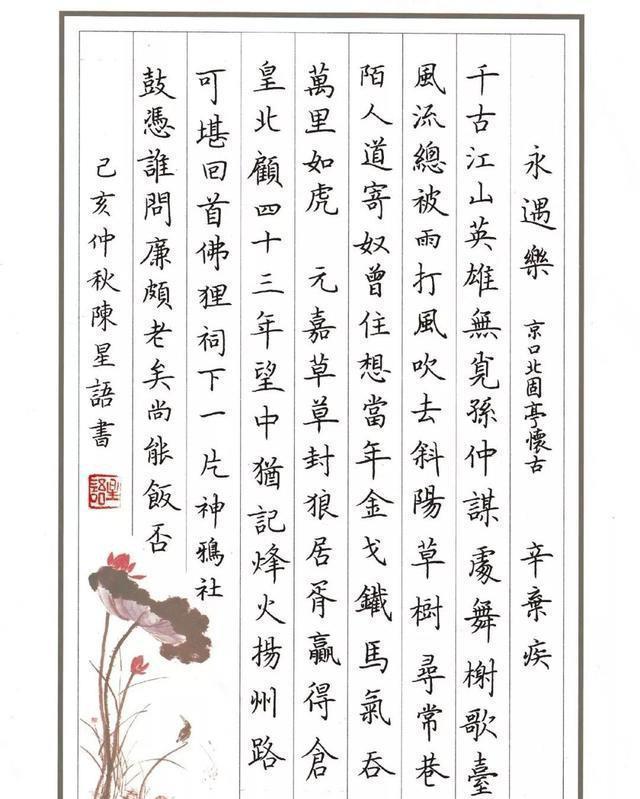 永遇樂 京口北固亭懷古 辛棄疾
千古江山英雄無覓孫仲謀處舞榭歌臺
風流總被雨打風吹去斜陽草樹 尋常巷
陌人道寄奴曾住想當年金戈鐵馬氣吞
萬里如虎 元嘉草草封狼居胥贏得倉
皇北顧四十三年望中猶記烽火揚州路
可堪回首佛狸祠下一片神鴉社
鼓憑誰問廉頗老矣尚能飯否
己亥仲秋陳星語書
星語